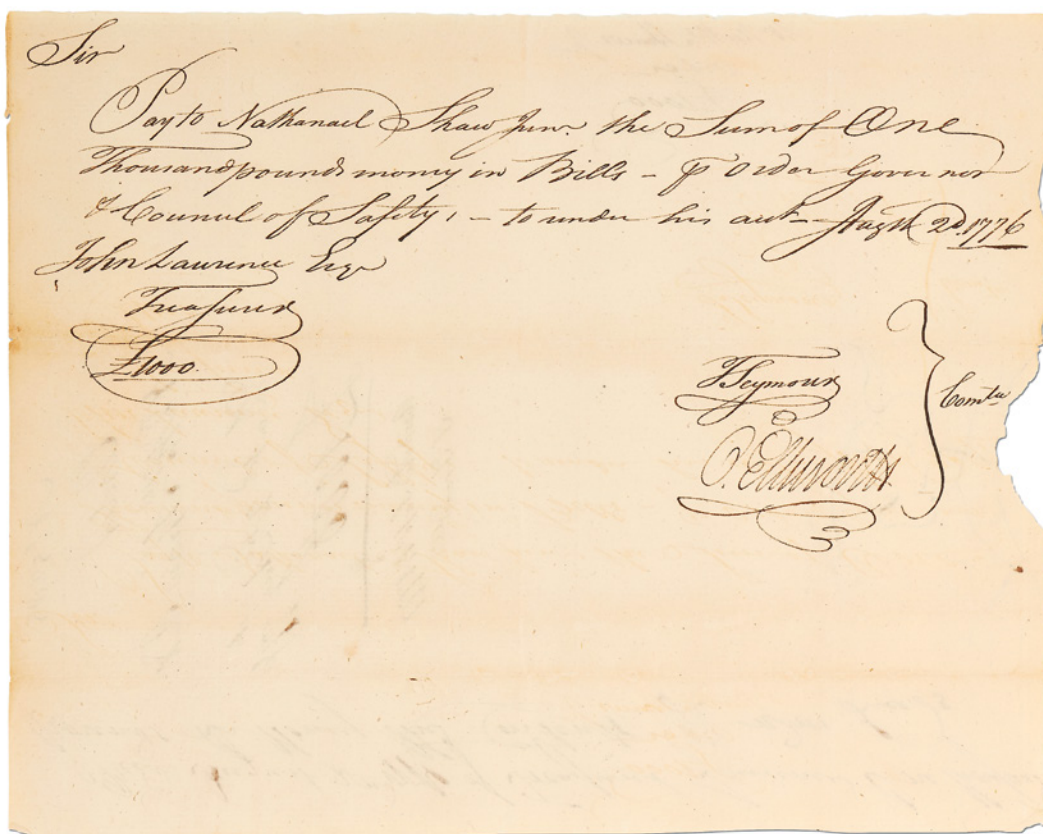 Sir
Pay to Nathanael Shaw Junr. the Sum of One
Thousand pounds money in Bills - ⅌ Order Governor
& Council of Safety, - to under his acct - Augst 2d. 1776
John Lawrence Esqr
Treasurer
£1000.
T Seymour
O. Ellsworth
Comtee